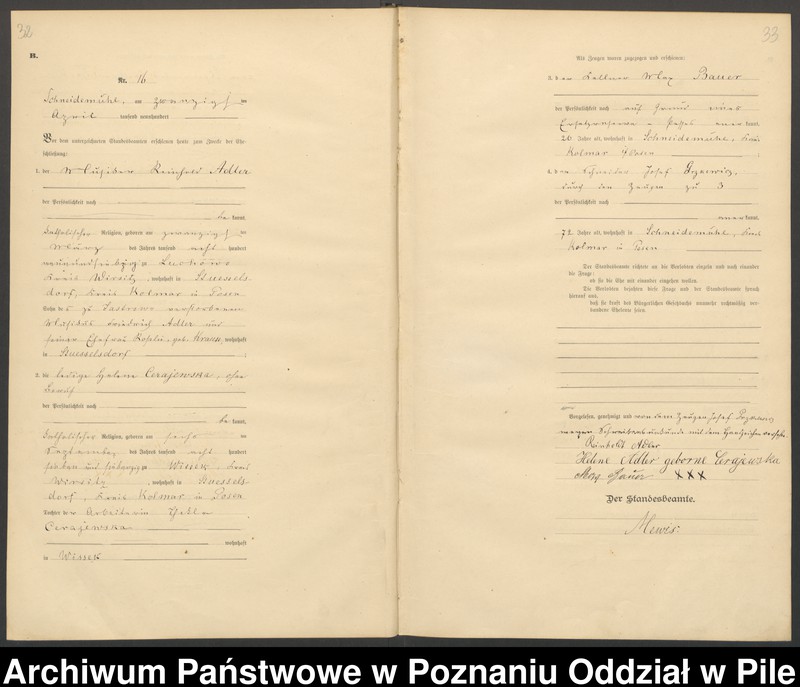 32
B.
Nr. 16
Schneidemühl, am zwanzigsten
April tausend neunhundert
Vor dem unterzeichneten Standesbeamten erschienen heute zum Zwecke der Ehe-
schließung:
1. der Musiker Reinhold Adler
der Persönlichkeit nach
be kannt,
katholischer Religion, geboren am zwanzigsten
März des Jahres tausend acht hundert
neunundsiebzig zu
Kreis Wirsitz, wohnhaft in Stuessels-
dorf, Kreis Kolmar in Posen
Sohn des zu verstorbenen
Musikus Friedrich Adler und
seiner Ehefrau Rosalie, geb. Krause, wohnhaft
in Stuesselsdorf ;
2. die ledige Helene Cerajewska, ohne
Beruf
der Persönlichkeit nach
be kannt,
katholischer Religion, geboren am sechs
September des Jahres tausend acht hundert
sieben und siebzig zu Wissek, Kreis
Wirsitz, wohnhaft in Stuessels-
dorf, Kreis Kolmar in Posen
Tochter der Arbeiterin
Cerajewska
wohnhaft
in Wissek
33
Als Zeugen waren zugezogen und erschienen:
3. der Kellner Max Bauer
der Persönlichkeit nach auf Grund eines
Passes aner kannt,
26 Jahre alt, wohnhaft in Schneidemühl, Kreis
Kolmar Posen ;
4. der Schreiber Josef
durch den Zeugen zu 3
der Persönlichkeit nach
aner kannt,
72 Jahre alt, wohnhaft in Schneidemühl, Kreis
Kolmar in Posen
Der Standesbeamte richtete an die Verlobten einzeln und nach einander
die Frage:
ob sie die Ehe mit einander eingehen wollen.
Die Verlobten bejahten diese Frage und der Standesbeamte sprach
hierauf aus,
daß sie kraft des Bürgerlichen Gesetzbuchs nunmehr rechtmäßig ver-
bundene Eheleute seien.
Vorgelesen, genehmigt und von dem Zeugen Josef
wegen Schreibensunkunde mit dem Handzeichen versehen
Reinhold Adler
Helene Adler geborne Cerajewska
Max Bauer XXX
Der Standesbeamte.
Mewis.
Archiwum Państwowe w Poznaniu Oddział w Pile